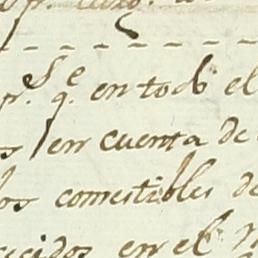 Se
pr. q. en todo el
en cuenta de
los comestibles de
cidos en el